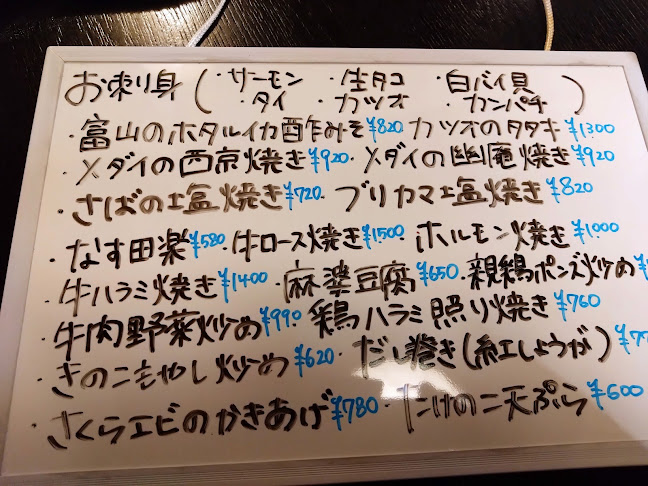 お刺り身(・サーモン ・生タコ ・白バイ貝
・タイ ・カツオ ・カンパチ)
・富山のホタルイカ酢みそ¥820 カツオのタタキ¥1300
・メダイの西京焼き¥920・メダイの幽庵焼き¥920
・さばの塩焼き¥720・ブリカマ塩焼き¥820
・なす田楽¥580・牛ロース焼き¥1500・ホルモン焼き¥1000
・牛ハラミ焼き¥1400・麻婆豆腐¥650・親鶏ポンズ炒め
・牛肉野菜炒め¥990・鶏ハラミ照り焼き¥760
・きのこもやし炒め¥620・だし巻き(紅しょうが)
・さくらエビのかきあげ¥780・たけのこ天ぷら¥600